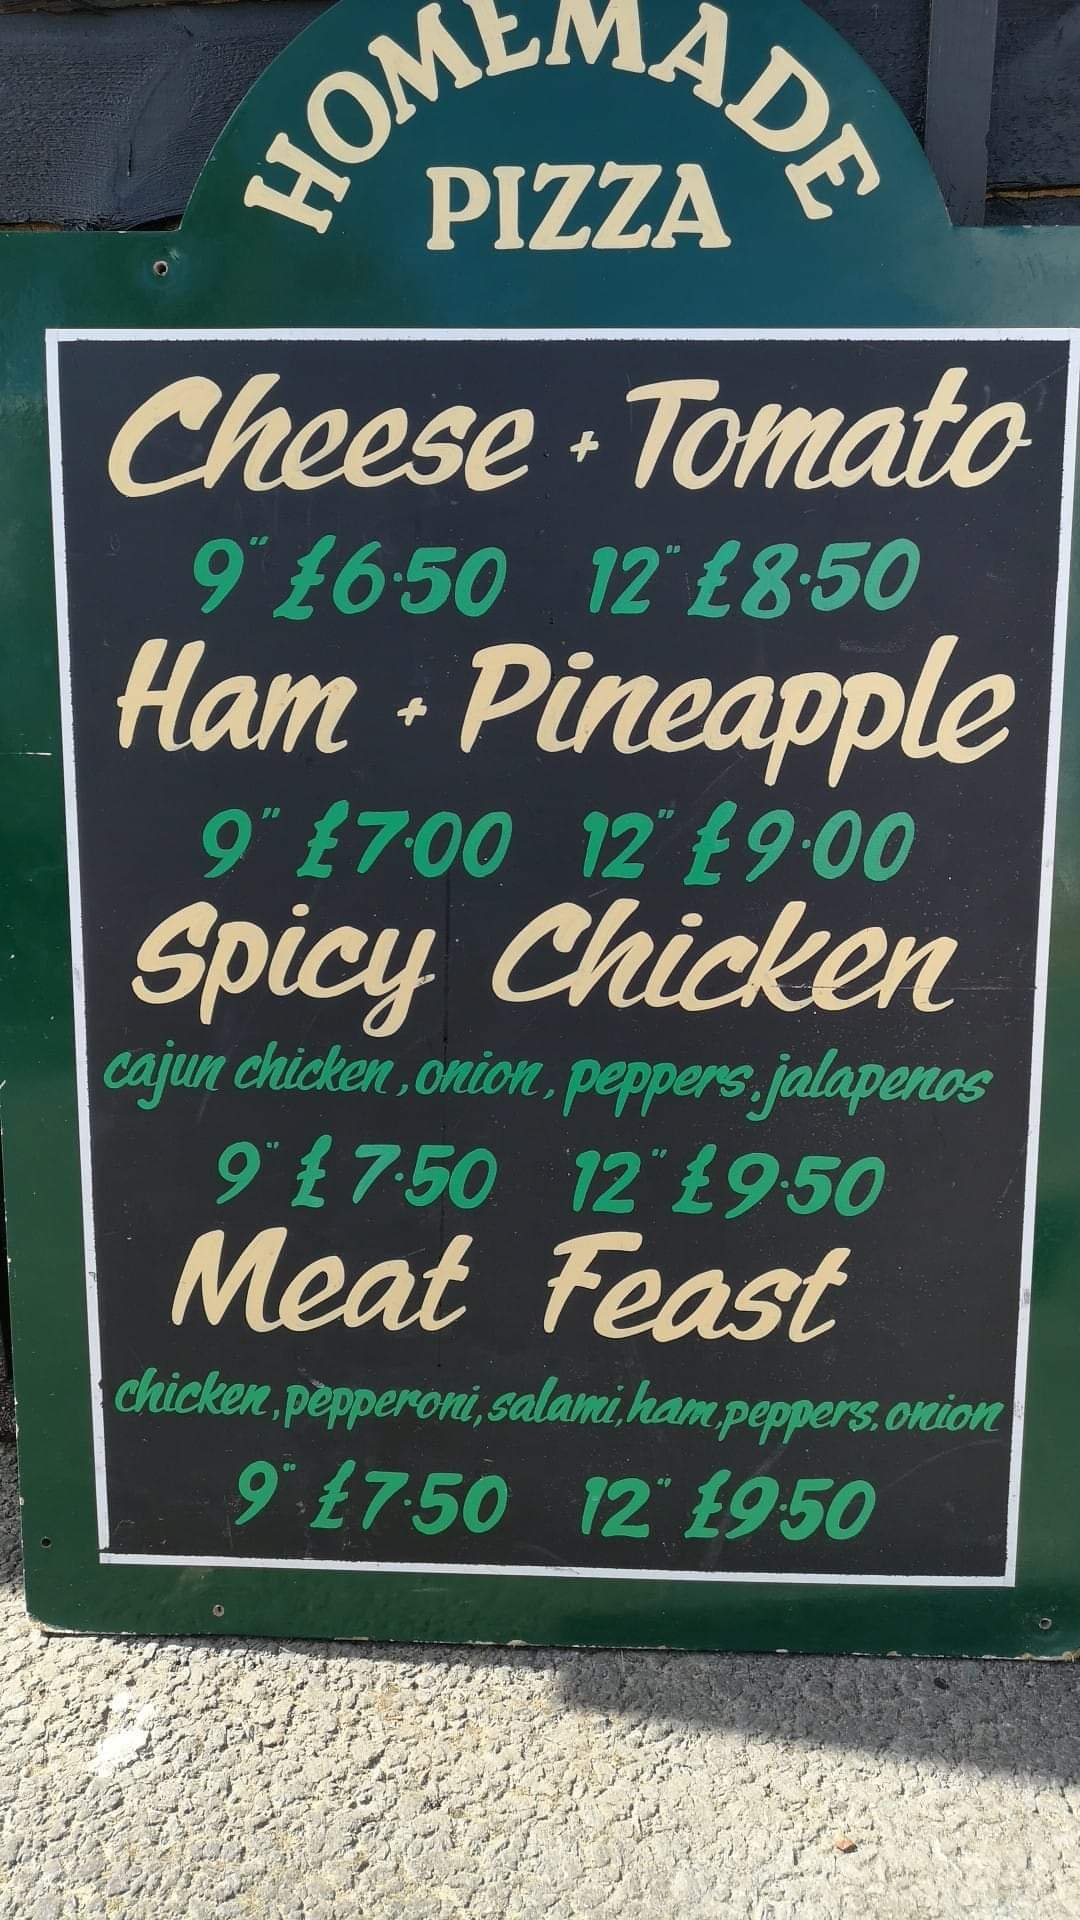 HOMEMADE
PIZZA
Cheese + Tomato
9" £6·50 12" £8·50
Ham + Pineapple
9" £7·00 12" £9·00
Spicy Chicken
cajun chicken, onion, peppers, jalapenos
9" £7·50 12" £9·50
Meat Feast
chicken, pepperoni, salami, ham, peppers, onion
9" £7·50 12" £9·50